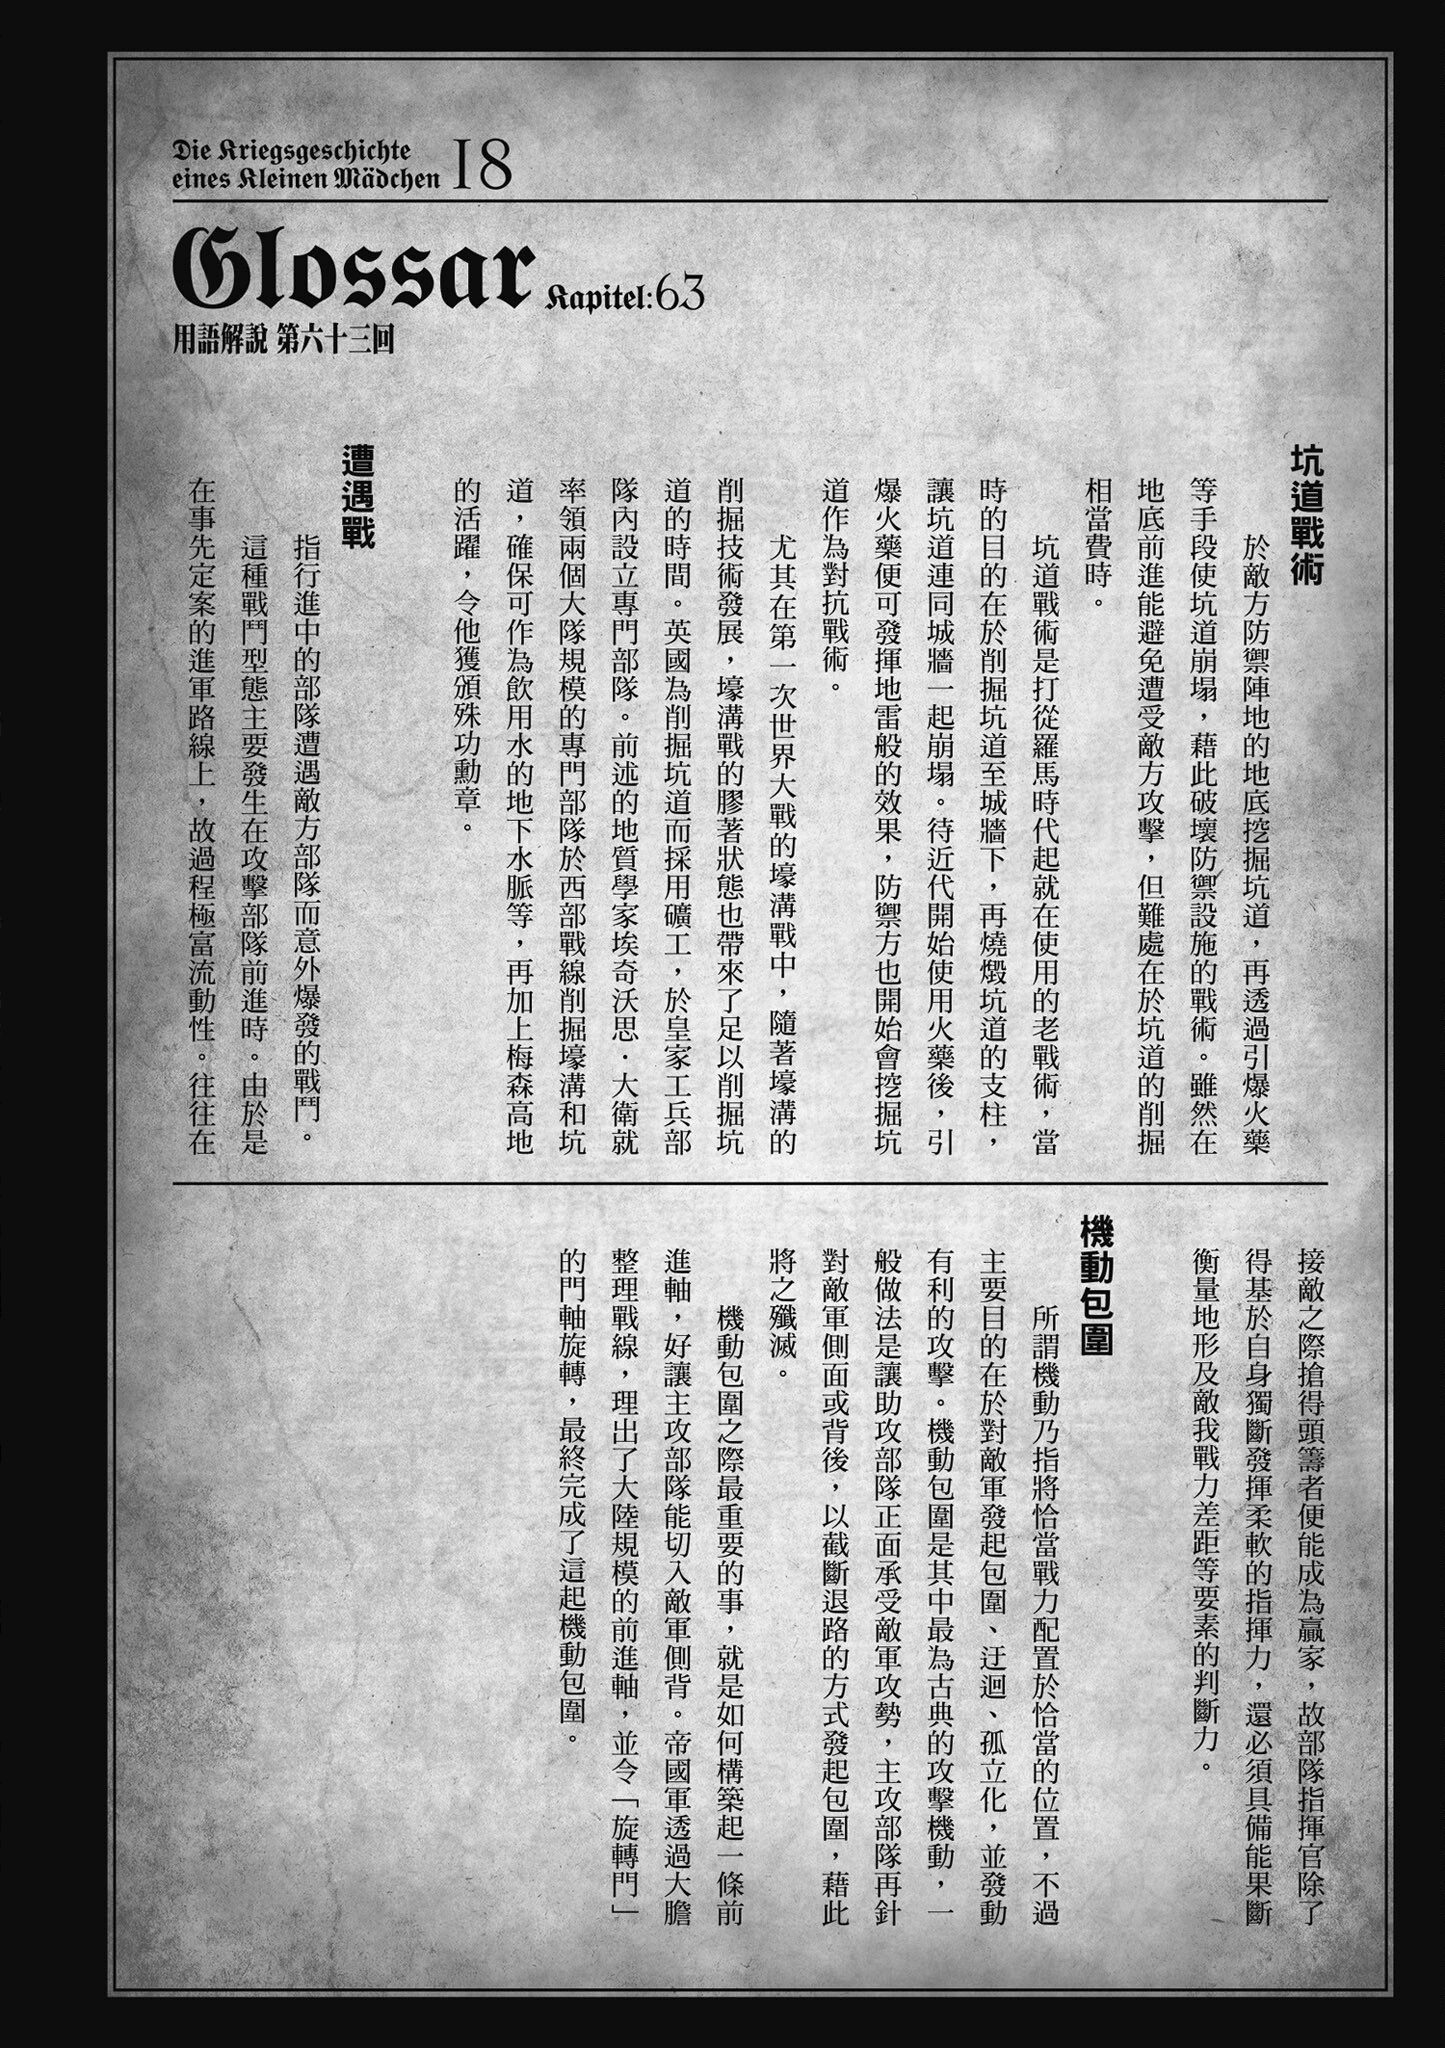 Die Kriegsgeschichte
eines Kleinen Mädchen 18
Glossar Kapitel:63
用語解說 第六十三回
坑道戰術
於敵方防禦陣地的地底挖掘坑道，再透過引爆火藥
等手段使坑道崩塌，藉此破壞防禦設施的戰術。雖然在
地底前進能避免遭受敵方攻擊，但難處在於坑道的削掘
相當費時。
坑道戰術是打從羅馬時代起就在使用的老戰術，當
時的目的在於削掘坑道至城牆下，再燒燬坑道的支柱，
讓坑道連同城牆一起崩塌。待近代開始使用火藥後，引
爆火藥便可發揮地雷般的效果，防禦方也開始會挖掘坑
道作為對抗戰術。
尤其在第一次世界大戰的壕溝戰中，隨著壕溝的
削掘技術發展，壕溝戰的膠著狀態也帶來了足以削掘坑
道的時間。英國為削掘坑道而採用礦工，於皇家工兵部
隊內設立專門部隊。前述的地質學家埃奇沃思．大衛就
率領兩個大隊規模的專門部隊於西部戰線削掘壕溝和坑
道，確保可作為飲用水的地下水脈等，再加上梅森高地
的活躍，令他獲頒殊功勳章。
遭遇戰
指行進中的部隊遭遇敵方部隊而意外爆發的戰鬥。
這種戰鬥型態主要發生在攻擊部隊前進時。由於是
在事先定案的進軍路線上，故過程極富流動性。往往在
接敵之際搶得頭籌者便能成為贏家，故部隊指揮官除了
得基於自身獨斷發揮柔軟的指揮力，還必須具備能果斷
衡量地形及敵我戰力差距等要素的判斷力。
機動包圍
所謂機動乃指將恰當戰力配置於恰當的位置，不過
主要目的在於對敵軍發起包圍、迂迴、孤立化，並發動
有利的攻擊。機動包圍是其中最為古典的攻擊機動，一
般做法是讓助攻部隊正面承受敵軍攻勢，主攻部隊再針
對敵軍側面或背後，以截斷退路的方式發起包圍，藉此
將之殲滅。
機動包圍之際最重要的事，就是如何構築起一條前
進軸，好讓主攻部隊能切入敵軍側背。帝國軍透過大膽
整理戰線，理出了大陸規模的前進軸，並令「旋轉門」
的門軸旋轉，最終完成了這起機動包圍。